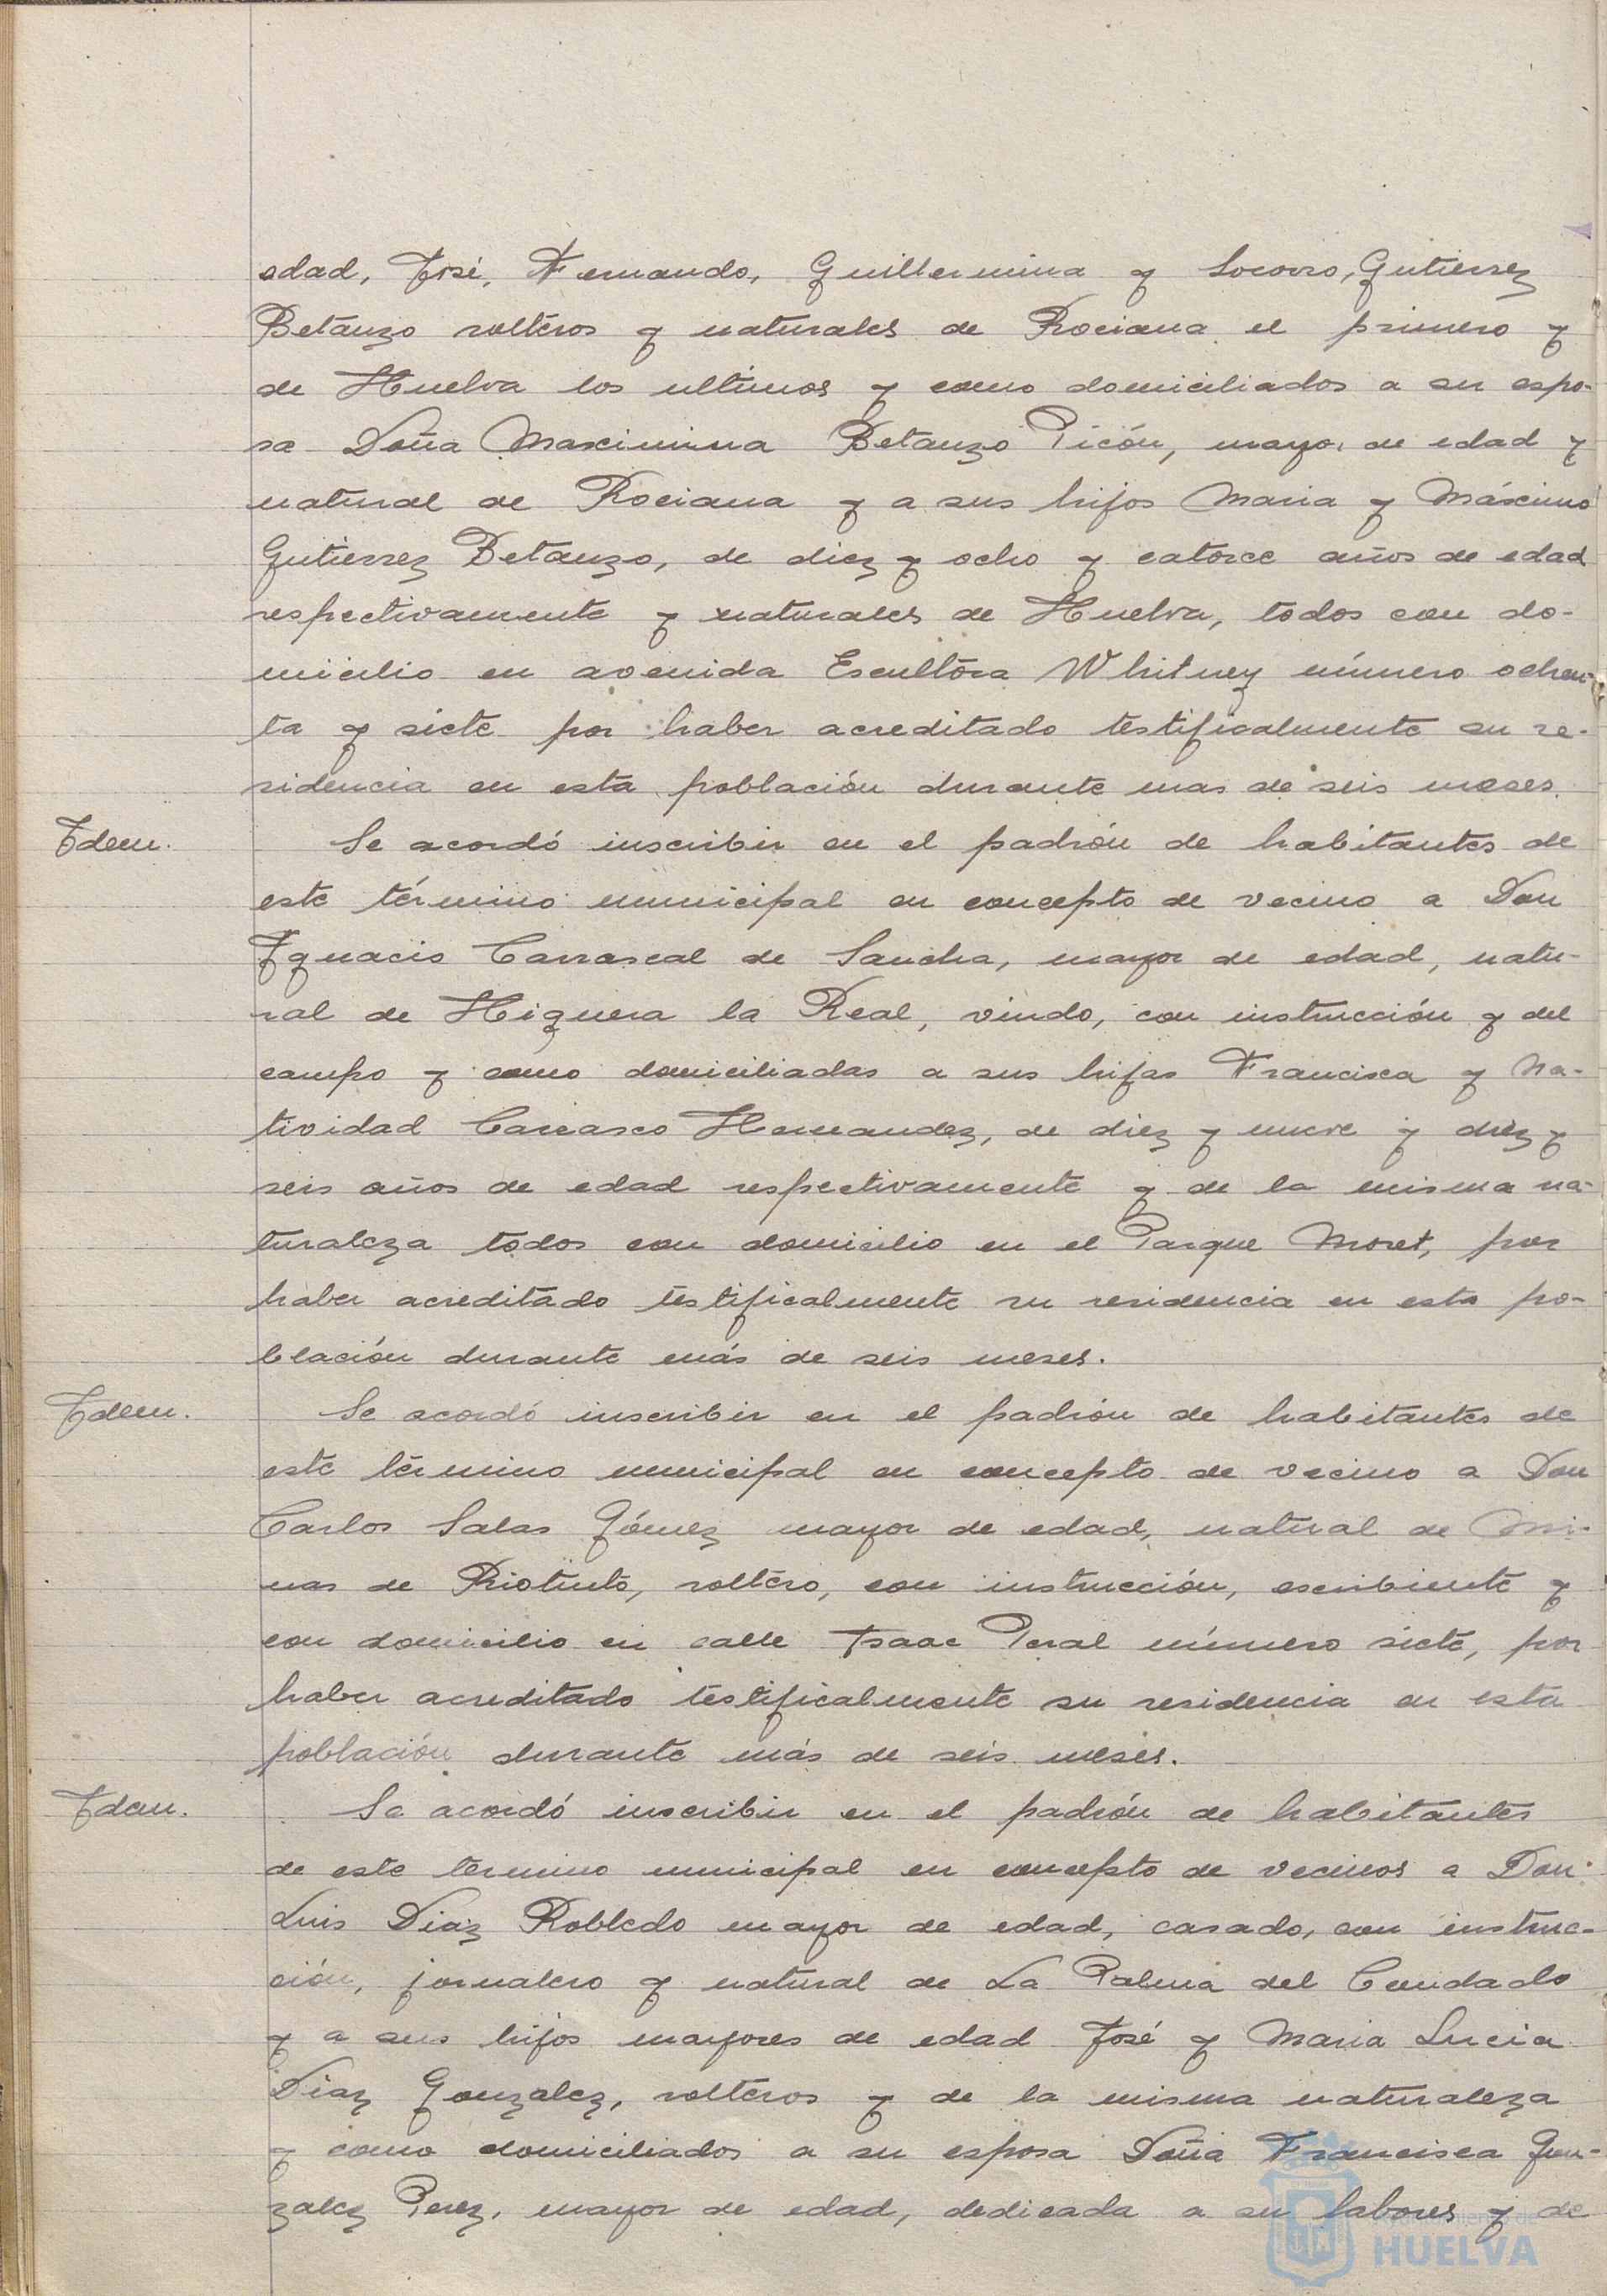 edad, José, Fernando, Guillermina y Socorro, Gutierrez
Betanzo solteros y naturales de Rociana el primero y
de Huelva los ultimos y como domiciliados a su espo-
sa Doña Maximina Betanzo Picón, mayor de edad y
natural de Rociana y a sus hijos Maria y Máximo
Gutierrez Betanzo, de diez y ocho y catorce años de edad
respectivamente y naturales de Huelva, todos con do-
micilio en avenida Escultora Whitney número ochen-
ta y siete por haber acreditado testificalmente su re-
sidencia en esta población durante mas de seis meses.
Idem. Se acordó inscribir en el padrón de habitantes de
este término municipal en concepto de vecino a Don
Ignacio Carrascal de Sancha, mayor de edad, natu-
ral de Higuera la Real, viudo, con instrucción y del
campo y como domiciliadas a sus hijas Francisca y Na-
tividad Carrasco Hernandez, de diez y nueve y diez y
seis años de edad respectivamente y de la misma na-
turaleza todos con domicilio en el Parque Moret, por
haber acreditado testificalmente su residencia en esta po-
blación durante más de seis meses.
Idem. Se acordó inscribir en el padrón de habitantes de
este término municipal en concepto de vecino a Don
Carlos Salas Gómez mayor de edad, natural de Mi-
nas de Riotinto, soltero, con instrucción, escribiente y
con domicilio en calle Isaac Peral número siete, por
haber acreditado testificalmente su residencia en esta
población durante más de seis meses.
Idem. Se acordó inscribir en el padrón de habitantes
de este termino municipal en concepto de vecinos a Don
Luis Diaz Robledo mayor de edad, casado, con instruc-
ción, jornalero y natural de La Palma del Condado
y a sus hijos mayores de edad José y Maria Lucia
Diaz Gonzalez, solteros y de la misma naturaleza
y como domiciliados a su esposa Doña Francisca Gon-
zalez Perez, mayor de edad, dedicada a su labores y de
Ayuntamiento de
HUELVA